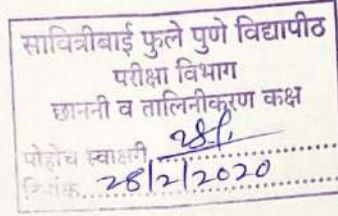 सावित्रीबाई फुले पुणे विद्यापीठ
परीक्षा विभाग
छाननी व तालिनीकरण कक्ष
पोहोच स्वाक्षरी
दिनांक 28/2/2020